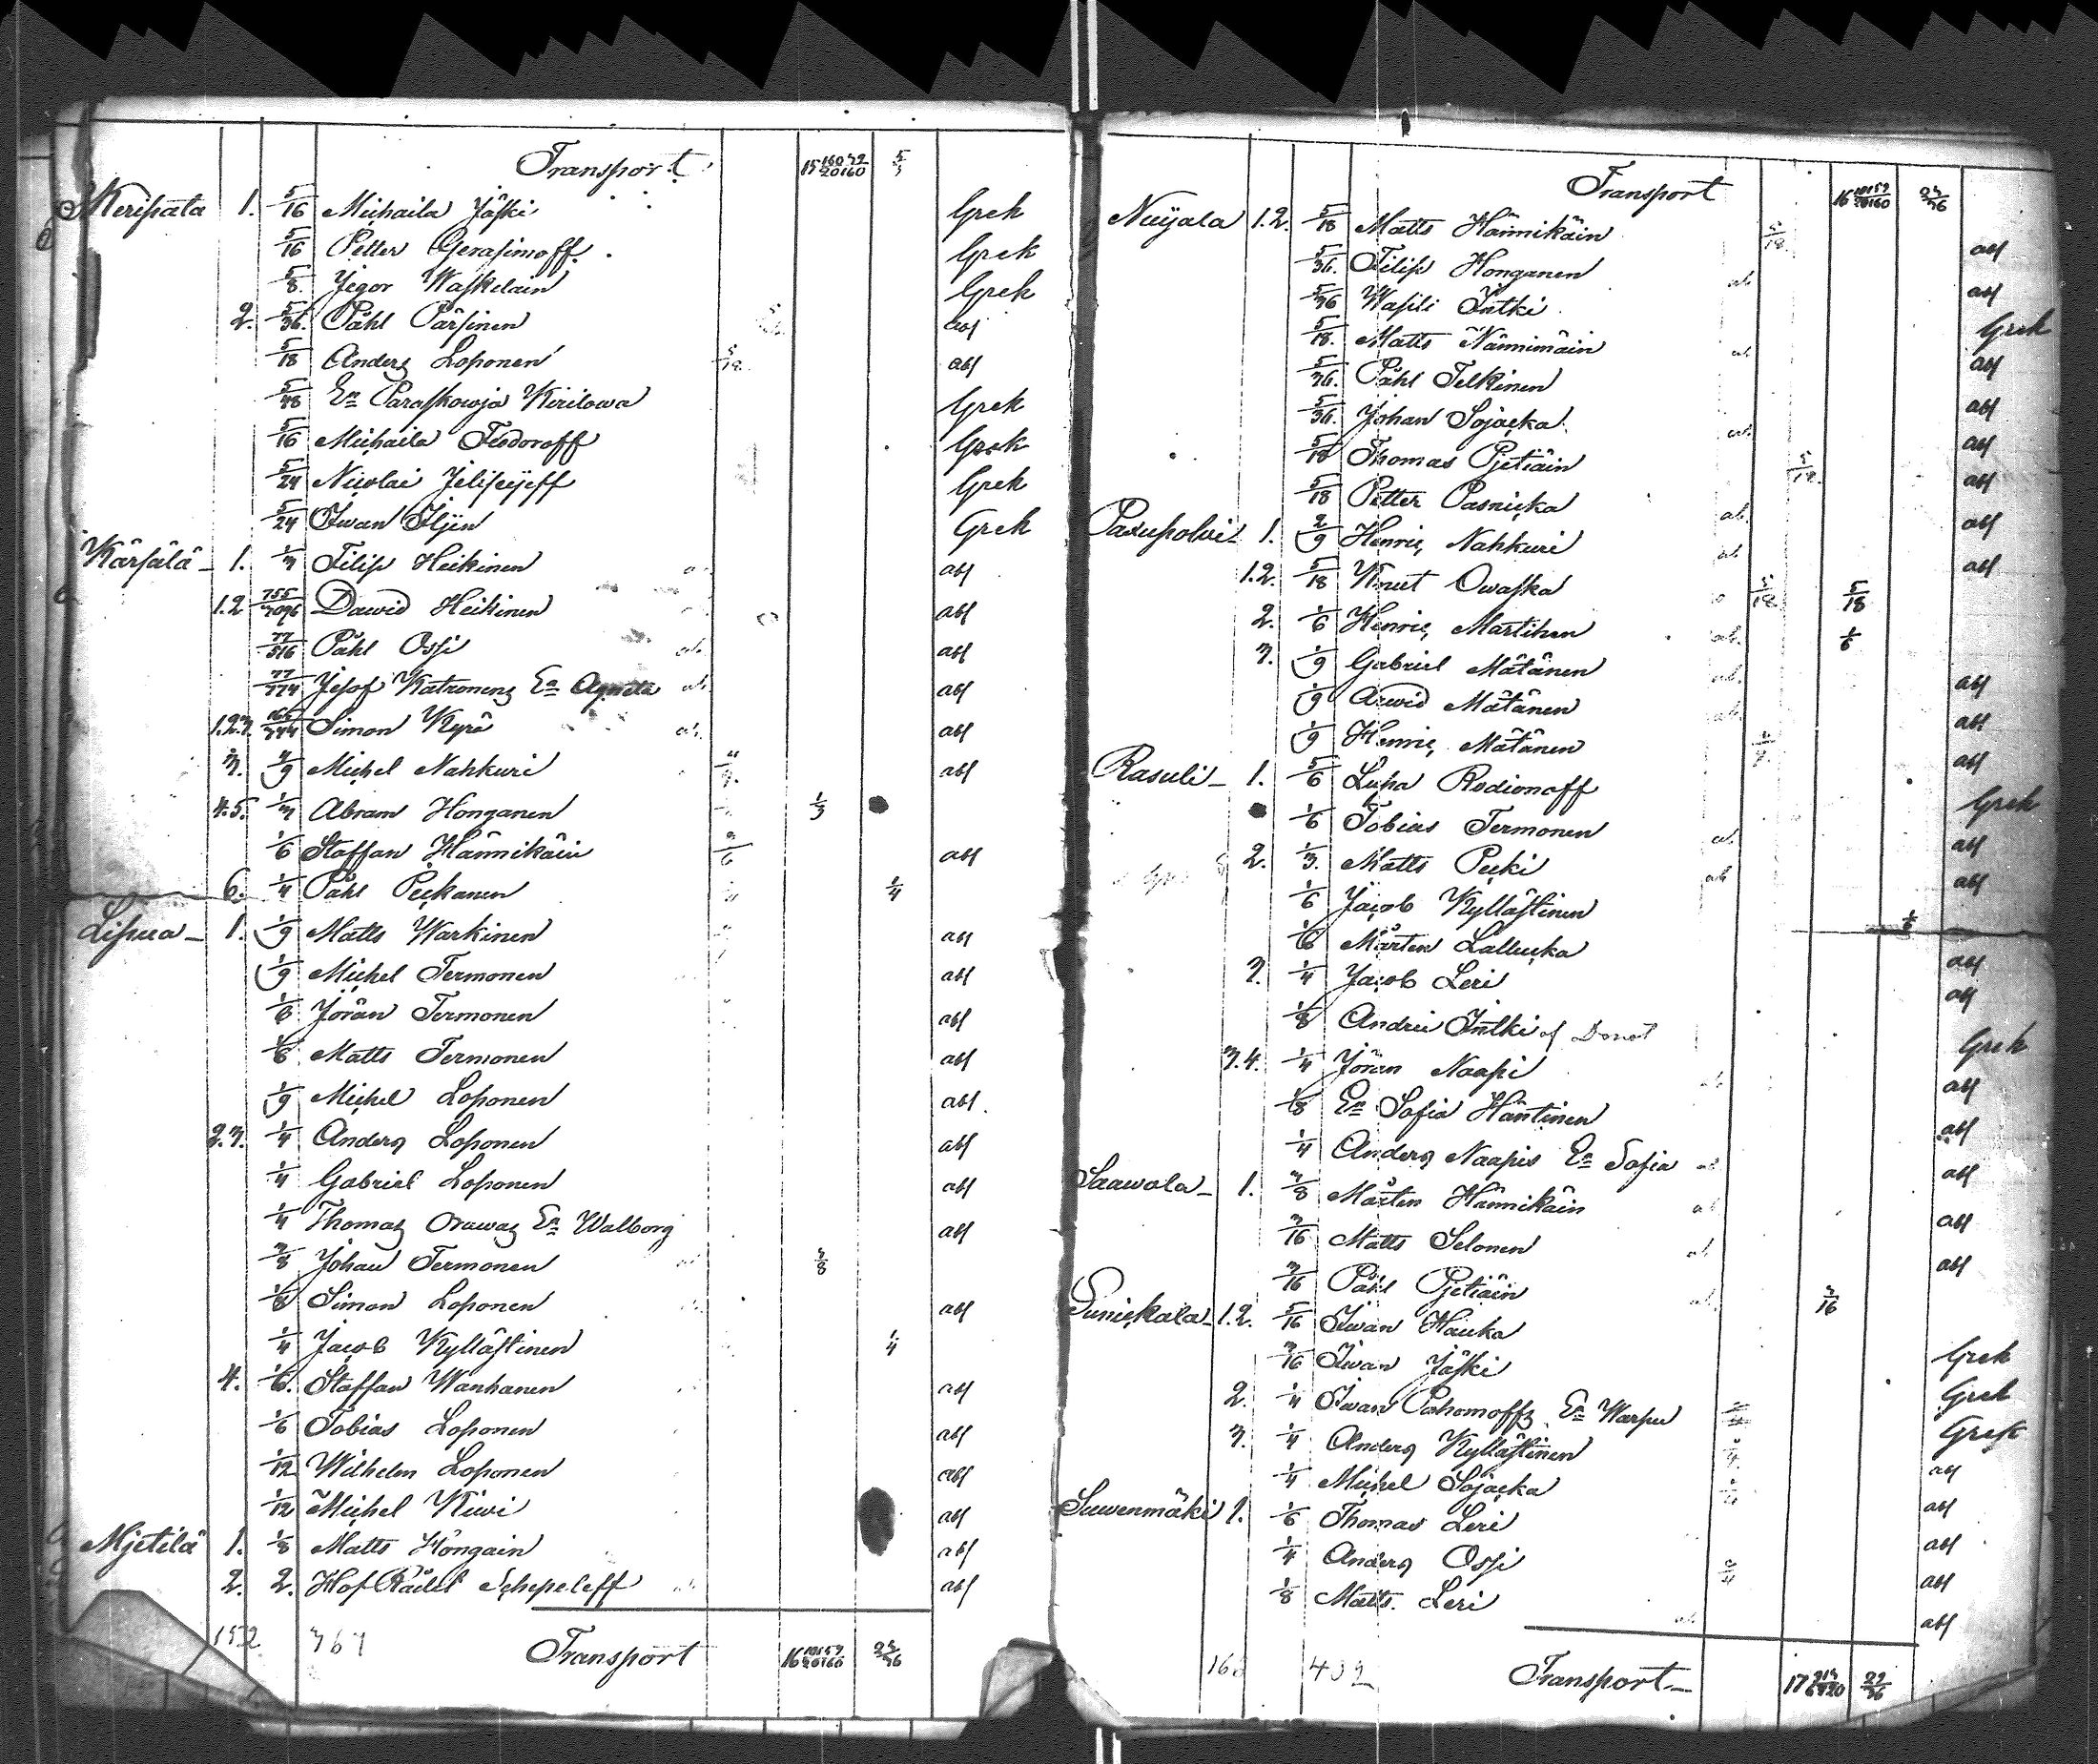 Transport
Keripata 1. 5/16 Michaila Jäski Grek
5/16 Petter Gerasimoff Grek
5/8 Jegor Waskelain Grek
2. 5/36 Påhl Pärsinen abf
5/18 Anders Loponen abf
5/48 En Paraskowja Kirilowa Grek
5/16 Michaila Feodoroff Grek
5/24 Nicolai Jelisejeff Grek
5/24 Iwan Iljin Grek
Kärsälä 1. 1/3 Filip Heikinen abf
1.2 Dawid Heikinen abf
Påhl Ossi abf
77/774 Jesof Katronens En Agneta abf
1.2.3. Simon Kyrö abf
3. Michel Nahkuri abf
4.5. 1/3 Abram Honganen 1/3
1/6 Staffan Hännikäin abf
6. 1/4 Påhl Peckanen 1/4
Lipua 1. 1/9 Matts Warkinen abf
1/9 Michel Termonen abf
1/6 Jöran Termonen abf
1/6 Matts Termonen abf
1/9 Michel Loponen abf
2.3. 1/4 Anders Loponen abf
1/4 Gabriel Loponen abf
1/4 Thomas Orawas En Walborg abf
3/8 Johan Termonen 3/8
1/8 Simon Loponen abf
1/4 Jacob Kyllästinen 1/4
4. 1/6 Staffan Wanhanen abf
1/6 Tobias Loponen abf
1/12 Wilhelm Loponen abf
1/12 Michel Kiwi abf
Mjetilä 1. 1/8 Matts Hongain abf
2. 2. Hof Rådet Schepeleff abf
152 367 Transport
Transport
Nuijala 1.2. 5/18 Matts Hännikäin abf
5/36 Filip Honganen abf
5/36 Wasili Intki Grek
5/18 Matts Nännimäin abf
5/36 Påhl Telkinen abf
5/36 Johan Sojacka abf
5/18 Thomas Pjetiäin abf
5/18 Petter Pasnicka abf
Pasupolvi 1. 2/9 Henric Nahkuri abf
1.2. 5/18 Knut Owaska 5/18
2. 1/6 Henric Martihen 1/6
3. 1/9 Gabriel Mätänen abf
1/9 Arwid Mätänen abf
1/9 Henric Mätänen abf
Rasuli 1. 5/6 Lupa Rodionoff Grek
1/6 Tobias Termonen abf
2. 1/3 Matts Pecki abf
1/6 Jacob Kyllästinen
1/6 Mårten Lallucka abf
3. 1/4 Jacob Leri abf
1/8 Andrei Intki Grek
3.4. 1/4 Jöran Naapi abf
1/8 En Sofia Häntinen abf
1/4 Anders Naapis En Sofia abf
Saawola 1. 3/8 Mårten Hännikäin abf
3/16 Matts Selonen abf
3/16 Påhl Pjetiäin 3/16
Sunickala 1.2. 5/16 Iwan Hauka Grek
3/16 Iwan Jäski Grek
2. 1/4 Iwan Pahomoffs En Warpu Grek
3. 1/4 Anders Kyllästinen abf
1/4 Michel Sojacka abf
Suwenmäki 1. 1/6 Thomas Leri abf
1/4 Anders Ossi abf
1/8 Matts Leri abf
432 Transport